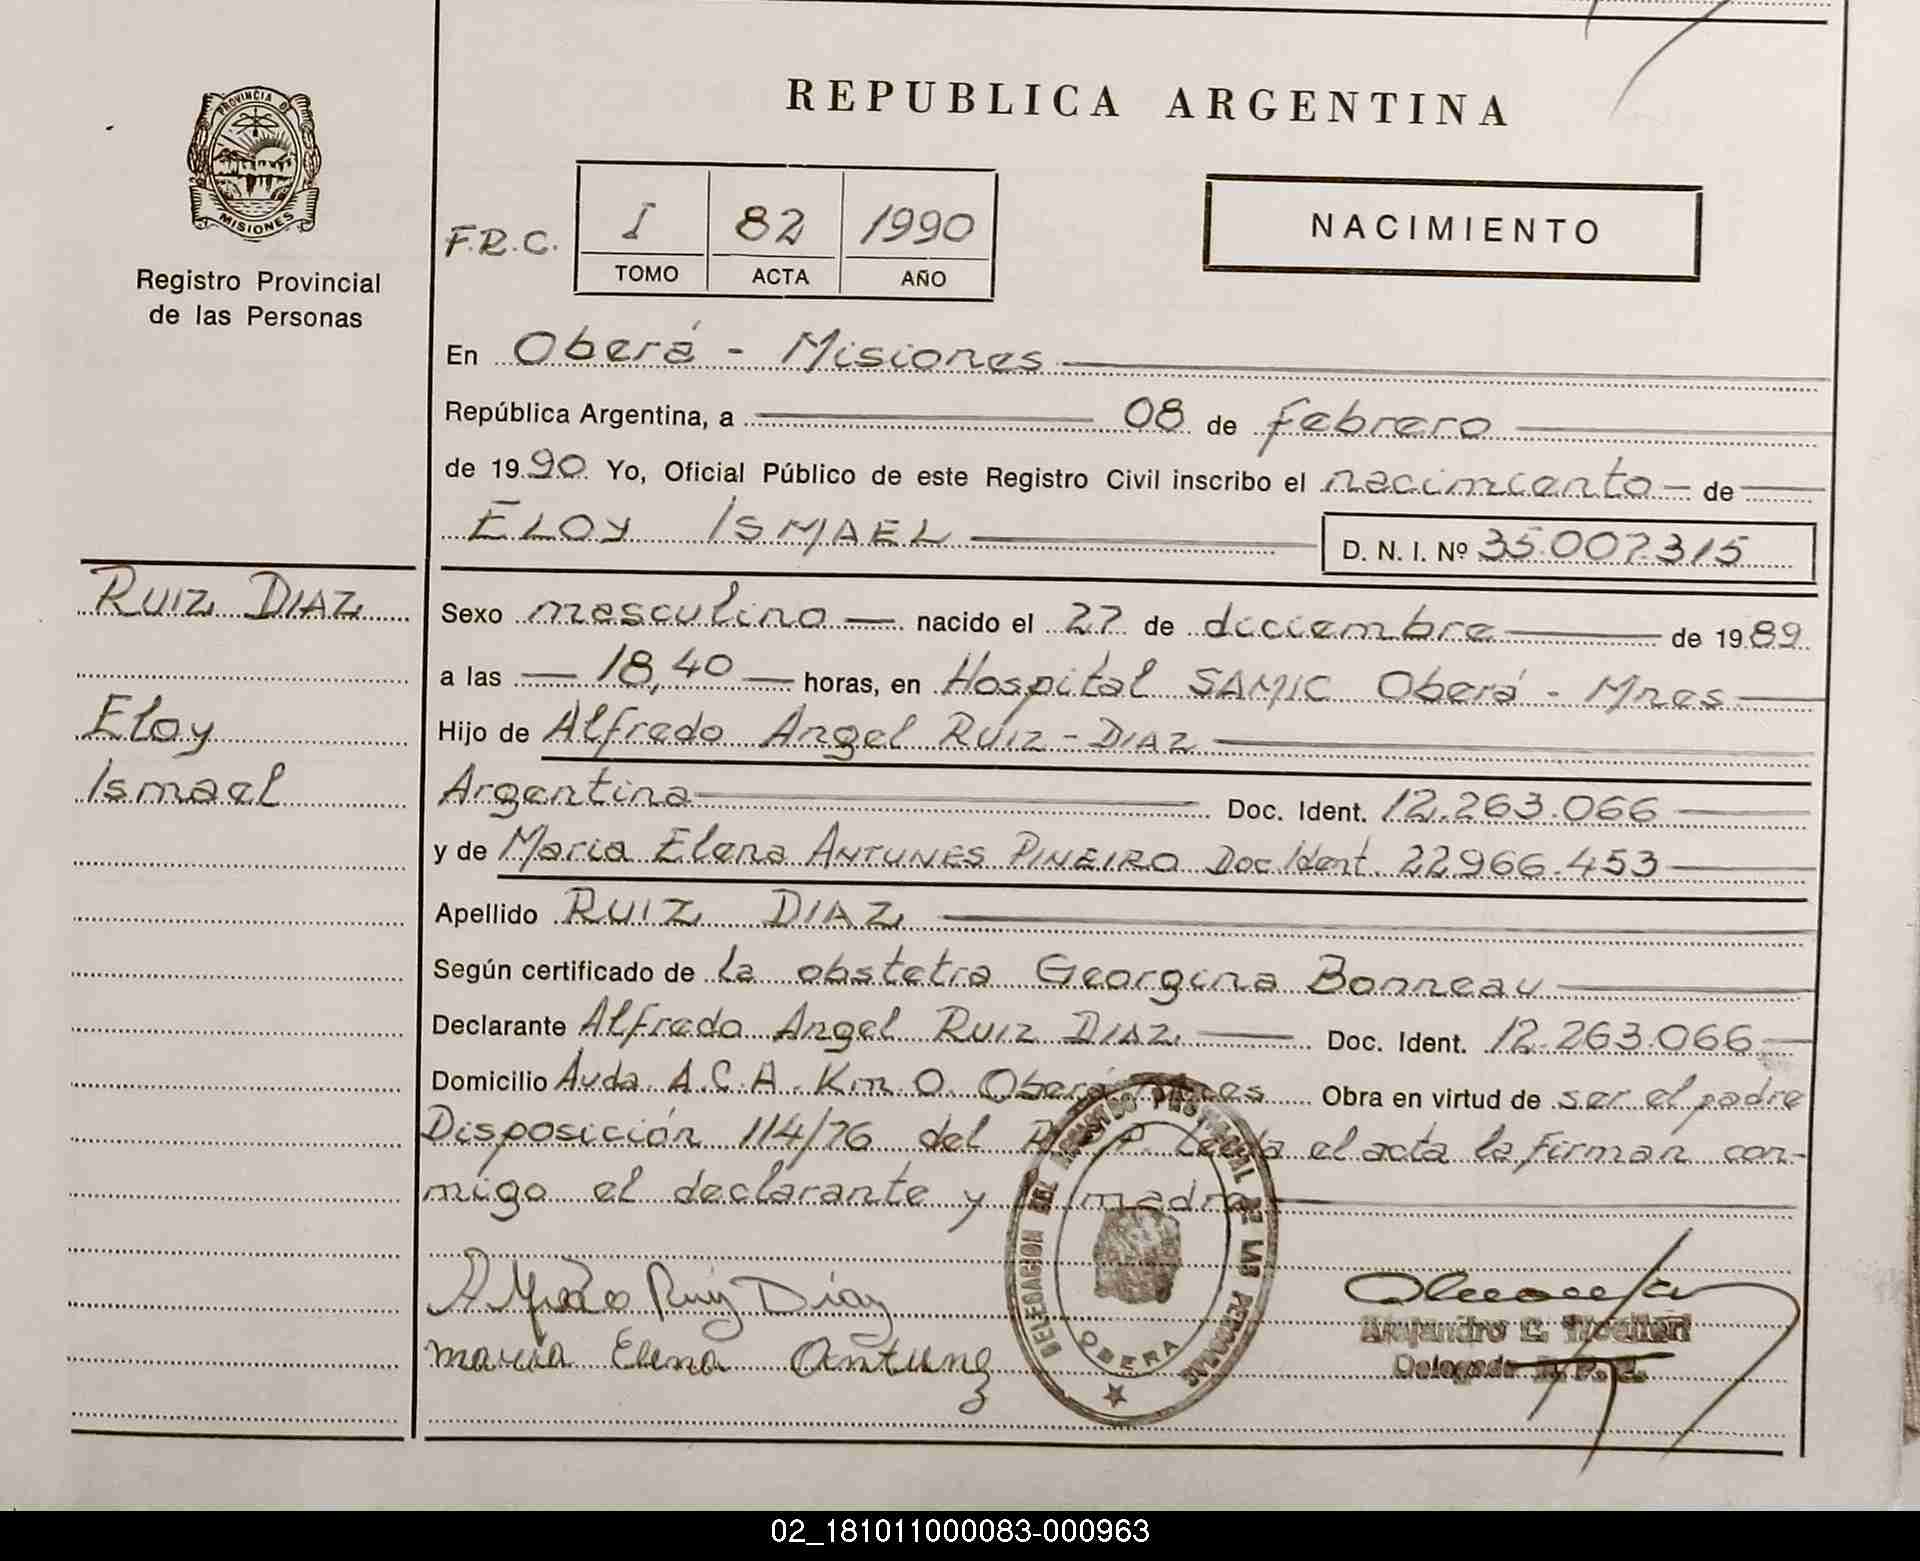 REPUBLICA ARGENTINA
PROVINCIA DE
MISIONES
Registro Provincial
de las Personas
F.R.C.
I 82 1990
TOMO ACTA AÑO
NACIMIENTO
En Oberá - Misiones
República Argentina, a 08 de febrero
de 1990 Yo, Oficial Público de este Registro Civil inscribo el nacimiento de
ELOY ISMAEL D. N. I. Nº 35.007.315
RUIZ DIAZ
Eloy
Ismael
Sexo masculino nacido el 27 de diciembre de 1989
a las 18,40 horas, en Hospital SAMIC Oberá - Mnes
Hijo de Alfredo Angel RUIZ - DIAZ
Argentina Doc. Ident. 12.263.066
y de Maria Elena ANTUNES PINEIRO Doc Ident. 22.966.453
Apellido RUIZ DIAZ
Según certificado de la obstetra Georgina Bonneau
Declarante Alfredo Angel RUIZ DIAZ Doc. Ident. 12.263.066
Domicilio Avda A.C.A. Km. 0. Oberá Mnes Obra en virtud de ser el padre
Disposición 114/76 del Leída el acta la firman con-
migo el declarante y madre
Alfredo Ruiz Diaz
maria Elena Antunez
DELEGACION DEL REGISTRO PROVINCIAL DE LAS PERSONAS
OBERA
Alejandro
Delegado
02_181011000083-000963